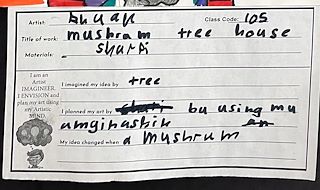 Artist: Class Code: 105
Title of work: mushram tree house
Materials: sharpi
I am an
Artist
IMAGINEER.
I ENVISION and
plan my art using
my Artistic
MIND.
I imagined my idea by tree
I planned my art by bu using mu
umginashin
My idea changed when a mushrum